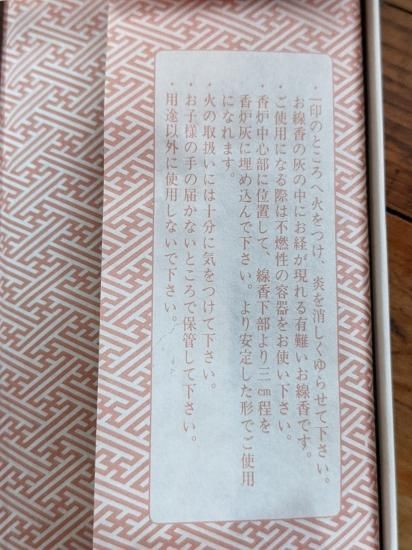 ・一印のところへ火をつけ、炎を消しくゆらせて下さい。
お線香の灰の中にお経が現れる有難いお線香です。
・ご使用になる際は不燃性の容器をお使い下さい。
・香炉中心部に位置して、線香下部より三㎝程を
香炉灰に埋め込んで下さい。より安定した形でご使用
になれます。
・火の取扱いには十分に気をつけて下さい。
・お子様の手の届かないところで保管して下さい。
・用途以外に使用しないで下さい。